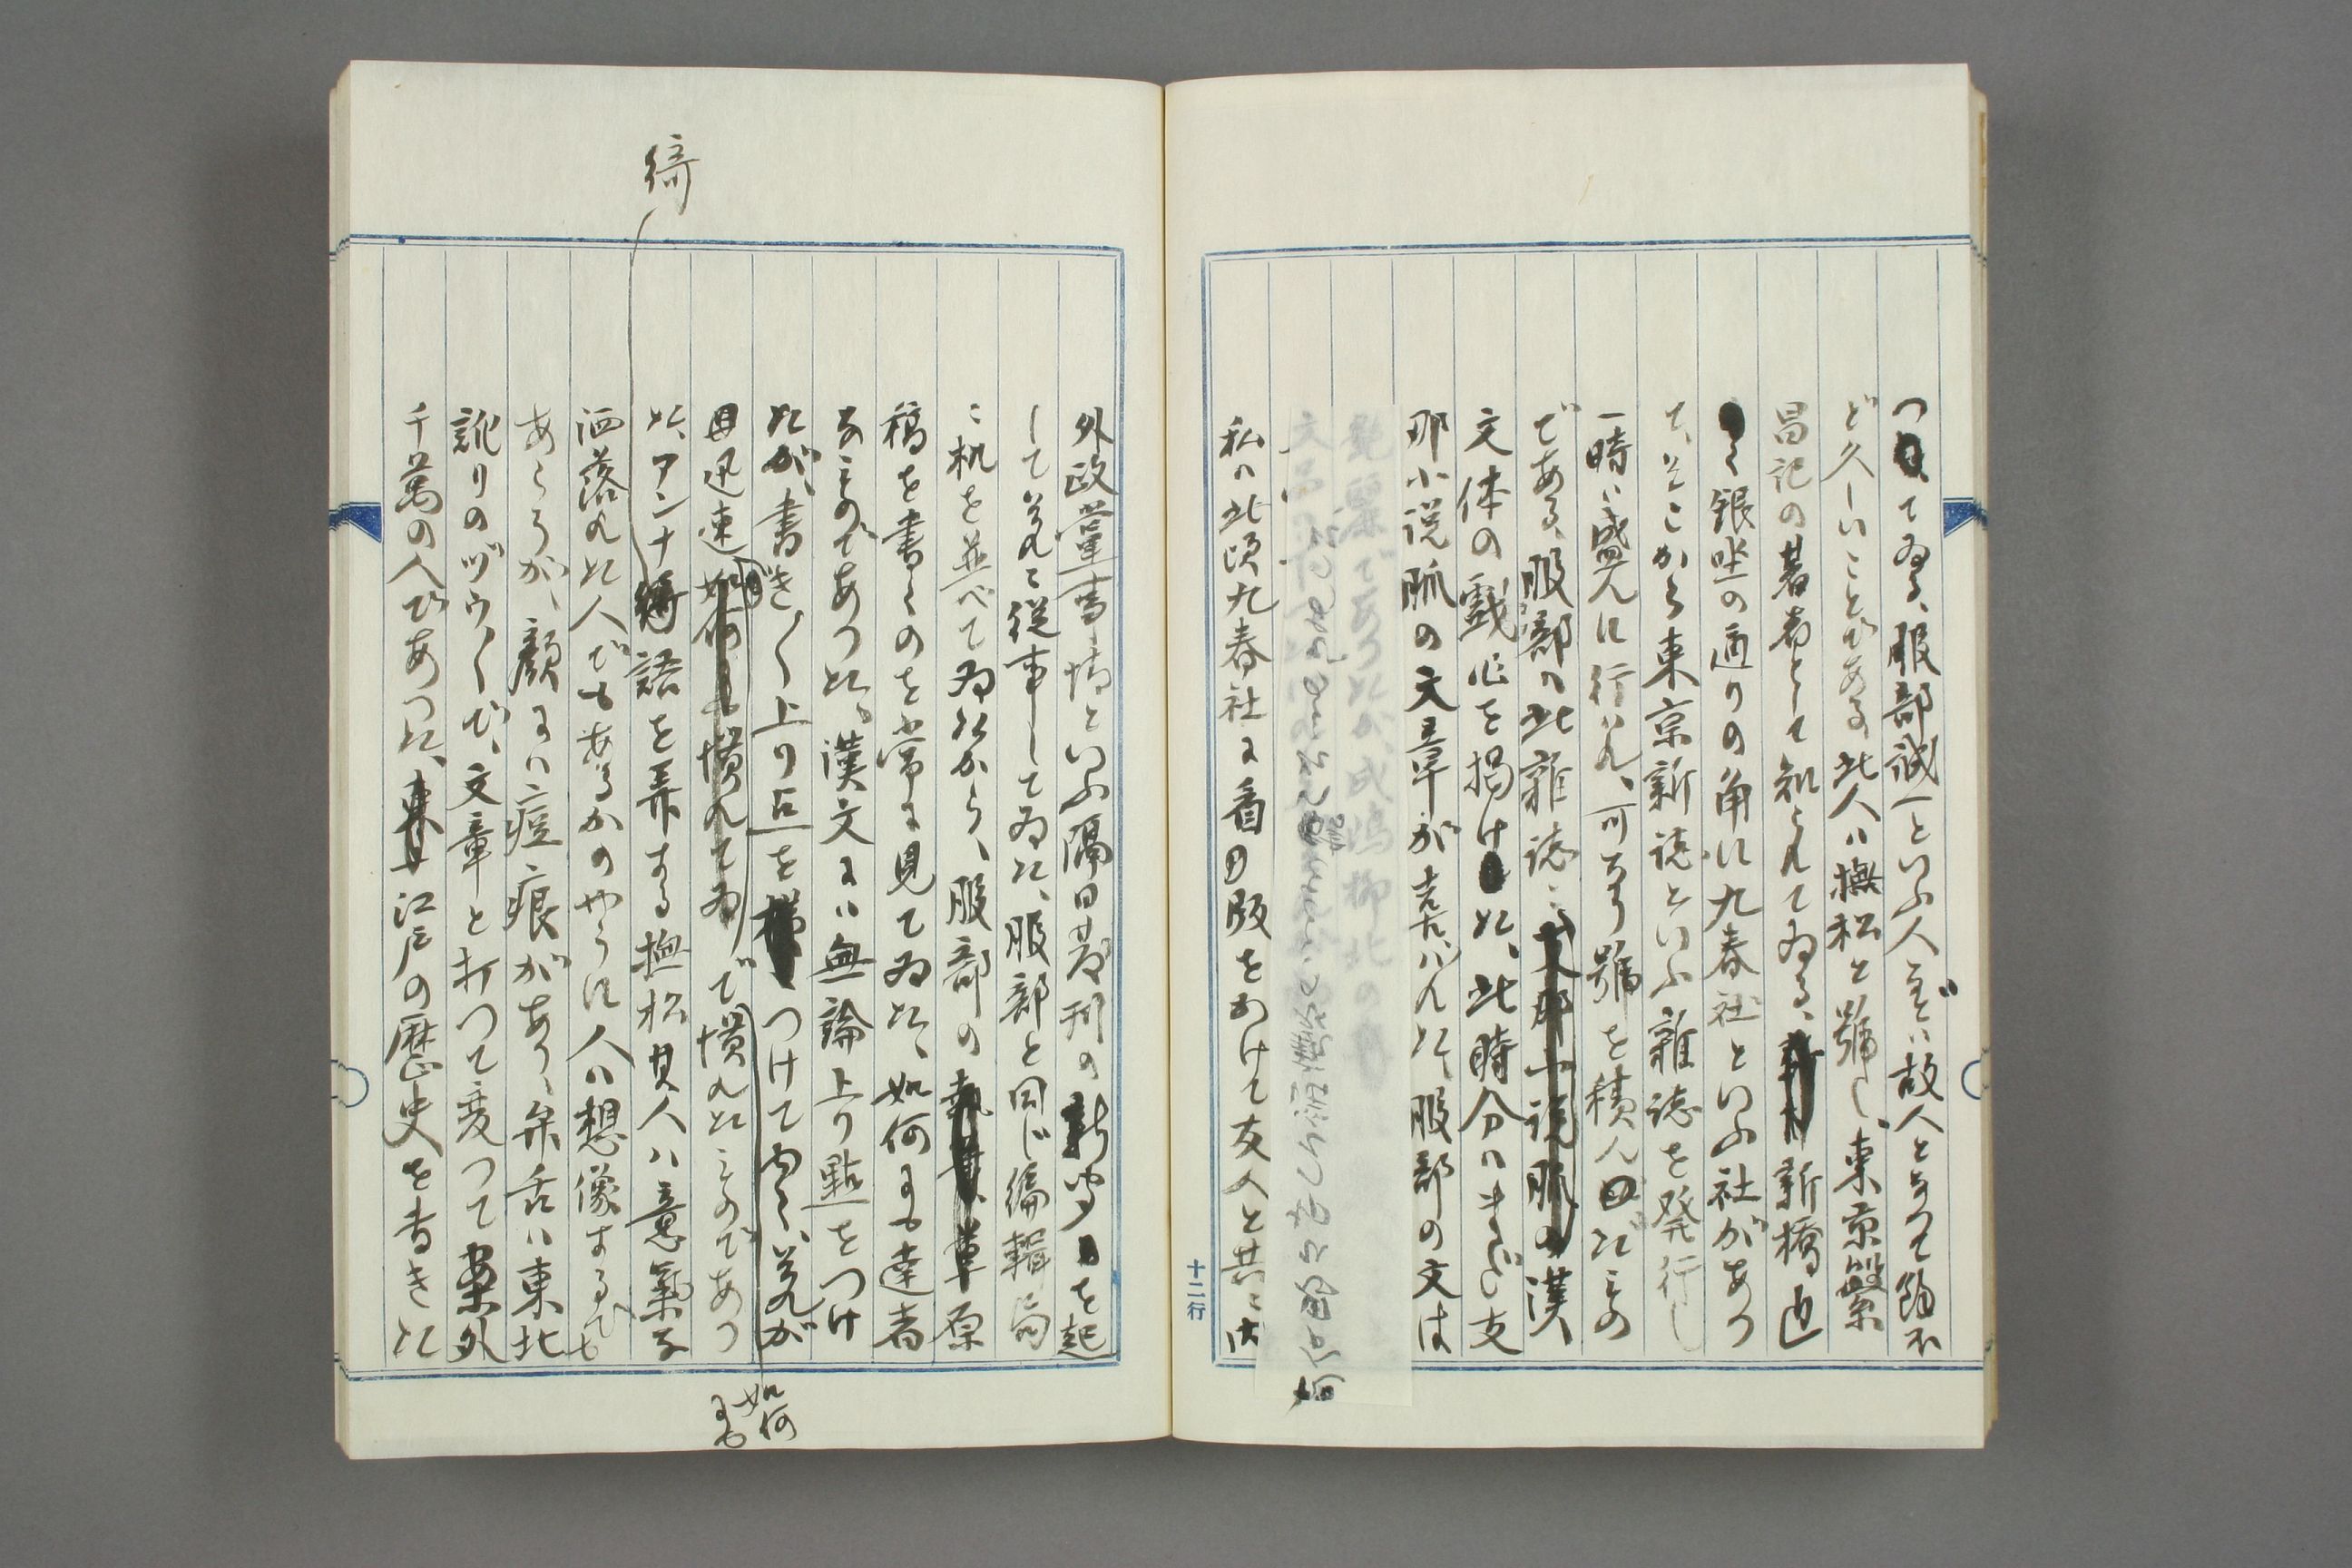 つてゐる、服部誠一といふ人などハ故人となつて餘ほ
ど久しいことである、此人ハ撫松と號し、東京繁
昌記の著者として知られてゐる、新橋近
く銀坐の通りの角に九春社といふ社があつ
て、そこから東京新誌といふ雜誌を発行し
一時ハ盛んに行はれ、可なり號を積んだもの
である、服部ハ此雜誌ニ漢
文体の戲作を掲けた、此時分ハまだ支
那小説脈の文章が喜バれた、服部の文は
艶麗であつたが、成島柳北の
私ハ此頃九春社に看版をかけて友人と共ニ内
十二行
外政黨事情といふ隔日発刊の新聞を起
して夫れニ從事してゐた、服部と同じ編輯局
ニ机を並べてゐたから、服部の草原
稿を書くのを常に見てゐた、如何にも達者
なものであつた、漢文にハ無論上り點をつけ
たが、書き〱上り点をつけて内く、夫れが
迅速で慣れたものであつ
如何
にも
た、アンナ綺語を弄する撫松其人ハ意氣な
綺
洒落れた人でもあるかのやうに人ハ想像するでも
あらうが、顔にハ痘痕があり、弁舌ハ東北
訛りのヅウ〱で、文章と打つて変つて案外
千萬の人であつた、江戸の歴史を書きた